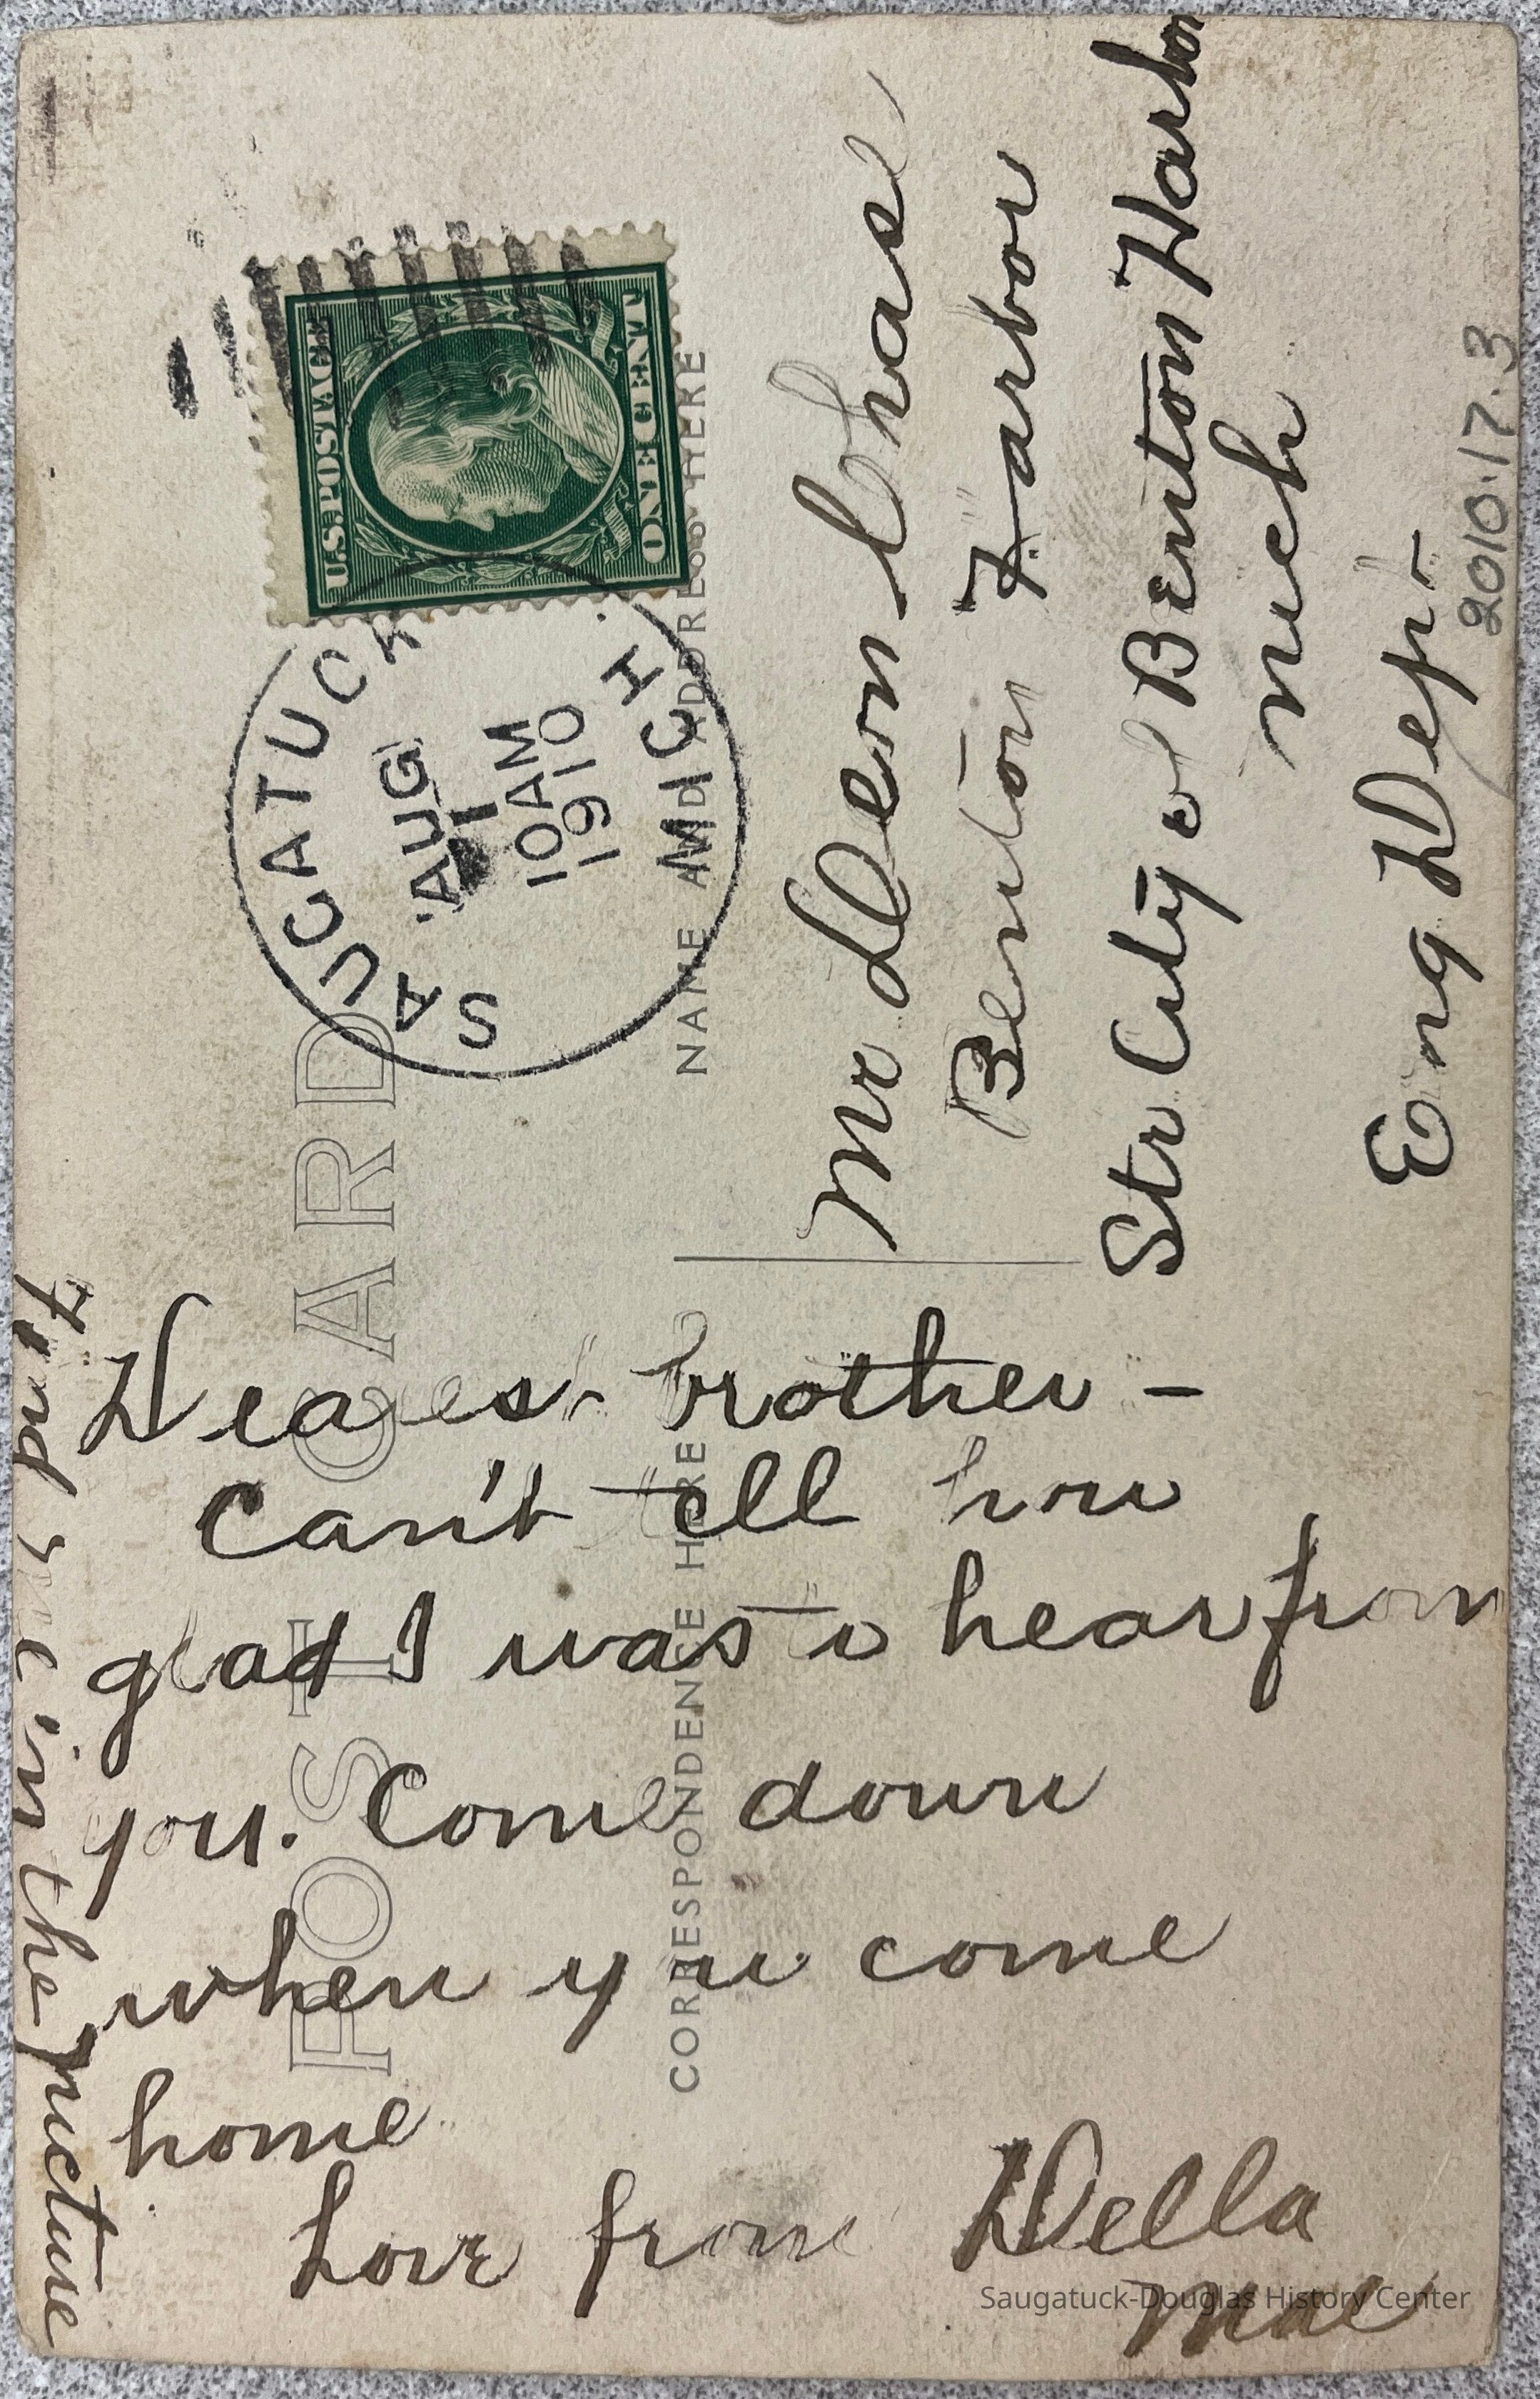 POST CARD
SAUGATUCK
AUG
1
10AM
1910
MICH.
U.S. POSTAGE
ONE CENT
CORRESPONDENCE HERE
NAME AND ADDRESS HERE
Find me in the picture
Dearest brother –
Can't tell how
glad I was to hear from
you. Come down
when you come
home
Love from Della
Mae
Mr Deon Chase
Benton Harbor
Str City of Benton Harbor
Mich
Eng Dept
2010.17.3
Saugatuck-Douglas History Center